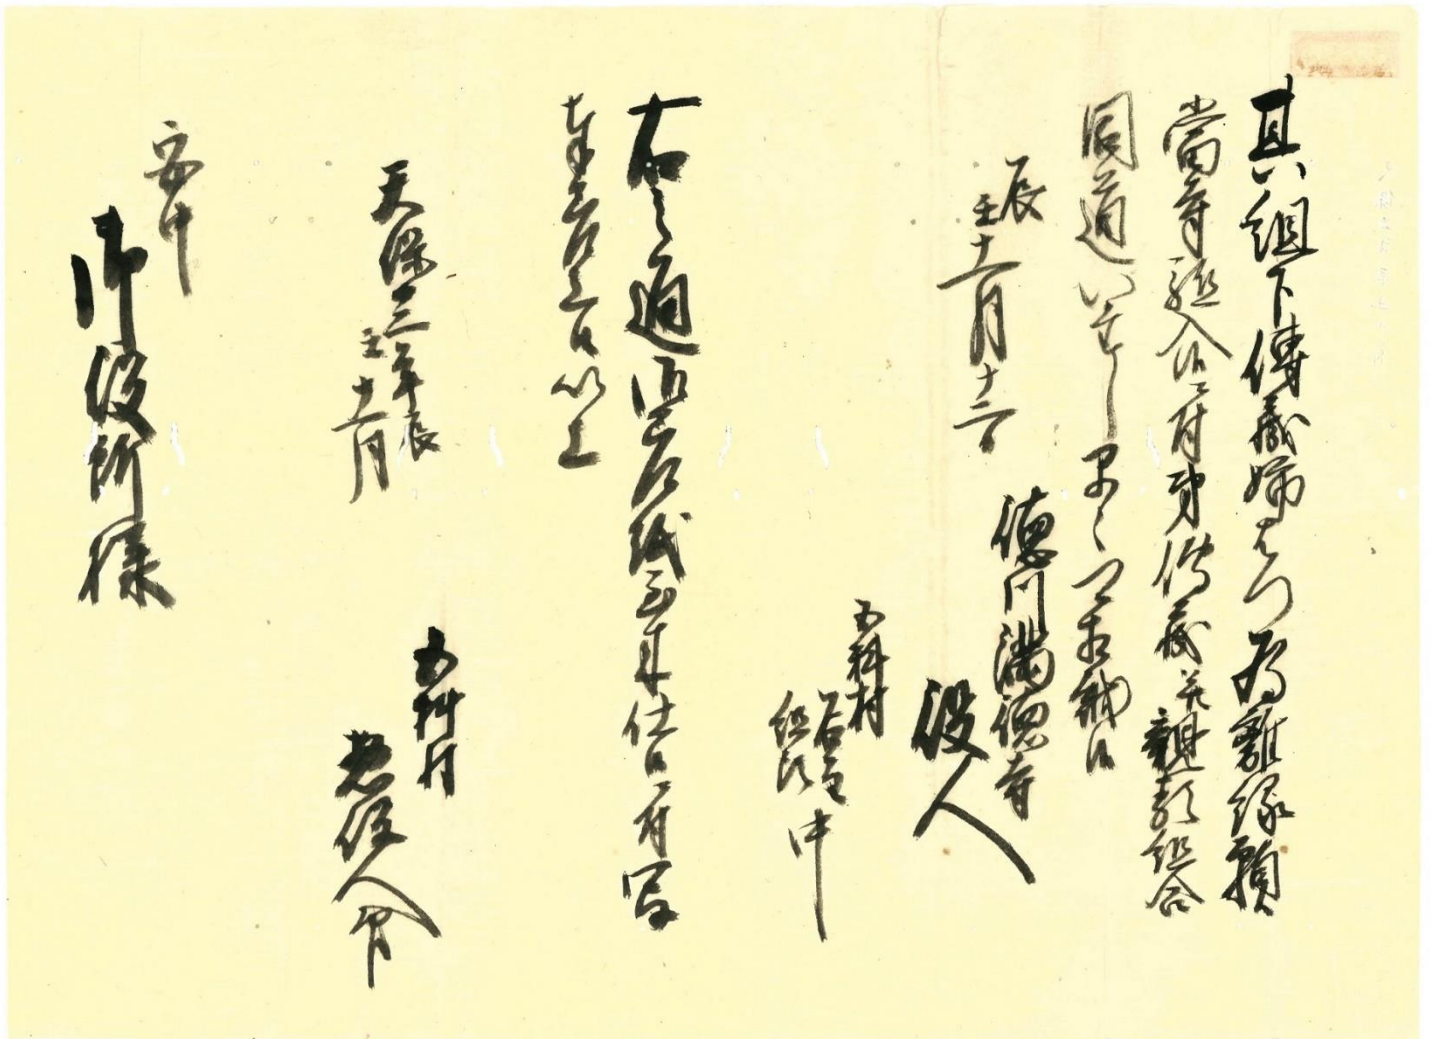 其組下傳蔵姉さの為離縁願
當寺駈入候ニ付身傳蔵并親類組合
同道いたし早々可相越候
辰
壬十一月十二日
徳川満徳寺
役人
五料村
名主
組頭
中
右之通御召状到来仕候ニ付写
奉差上候以上
天保三年辰
壬十一月
五料村
役人
安中
御役所様